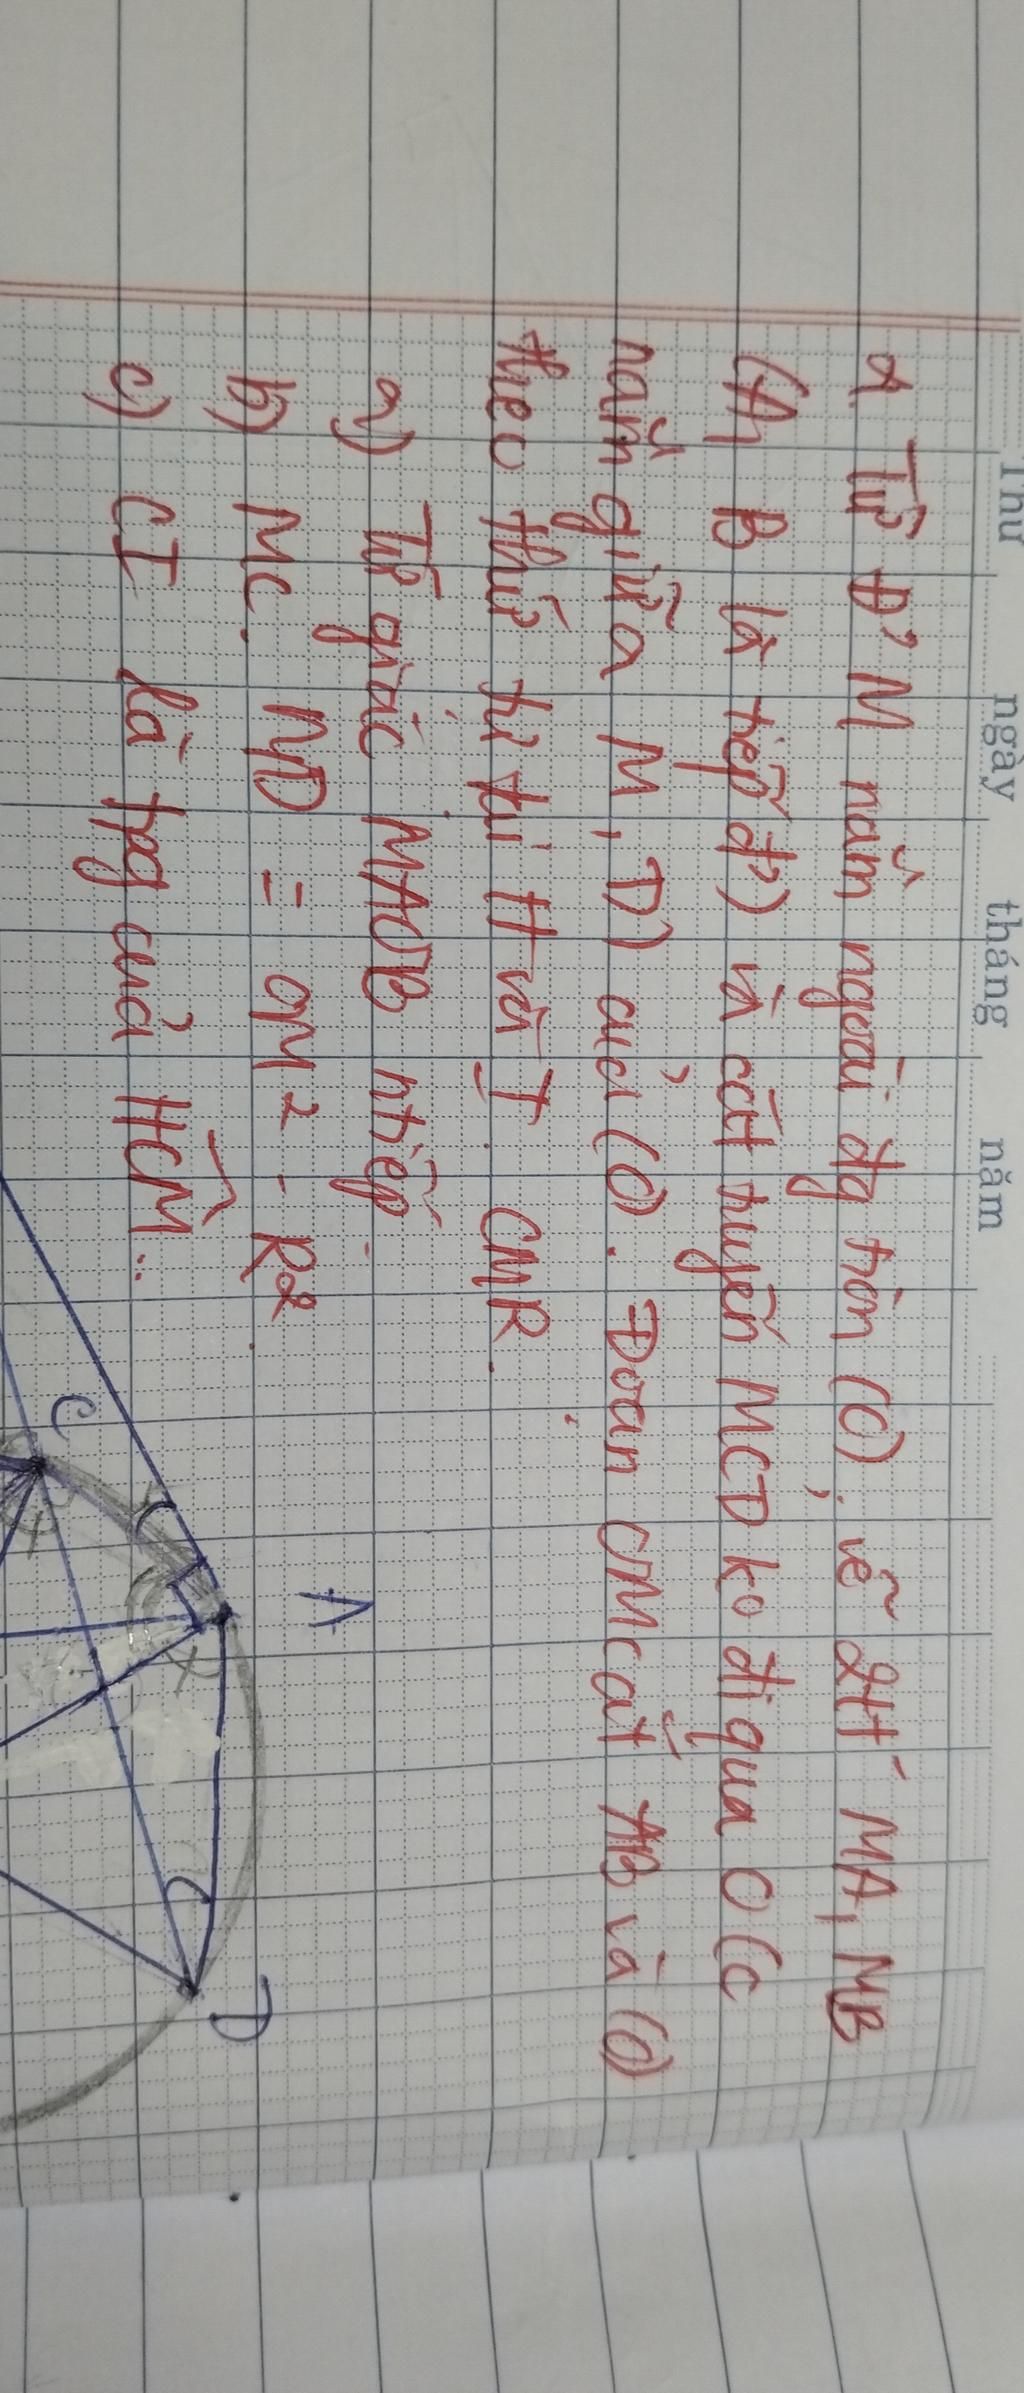 Thứ ngày tháng năm
2. Từ Đ' M nằm ngoài đg tròn (O), vẽ 2tt' MA, MB
(A, B là tiếp đ') và cát tuyến MCD ko đi qua O (C
nằm giữa M, D) của (O). Đoạn OM cắt AB và (O)
theo thứ tự tại H và I. CMR.
a) Tứ giác MAOB ntiếp
b) MC. MD = OM² - R².
c) CI là tpg của HCM.
A
C
D